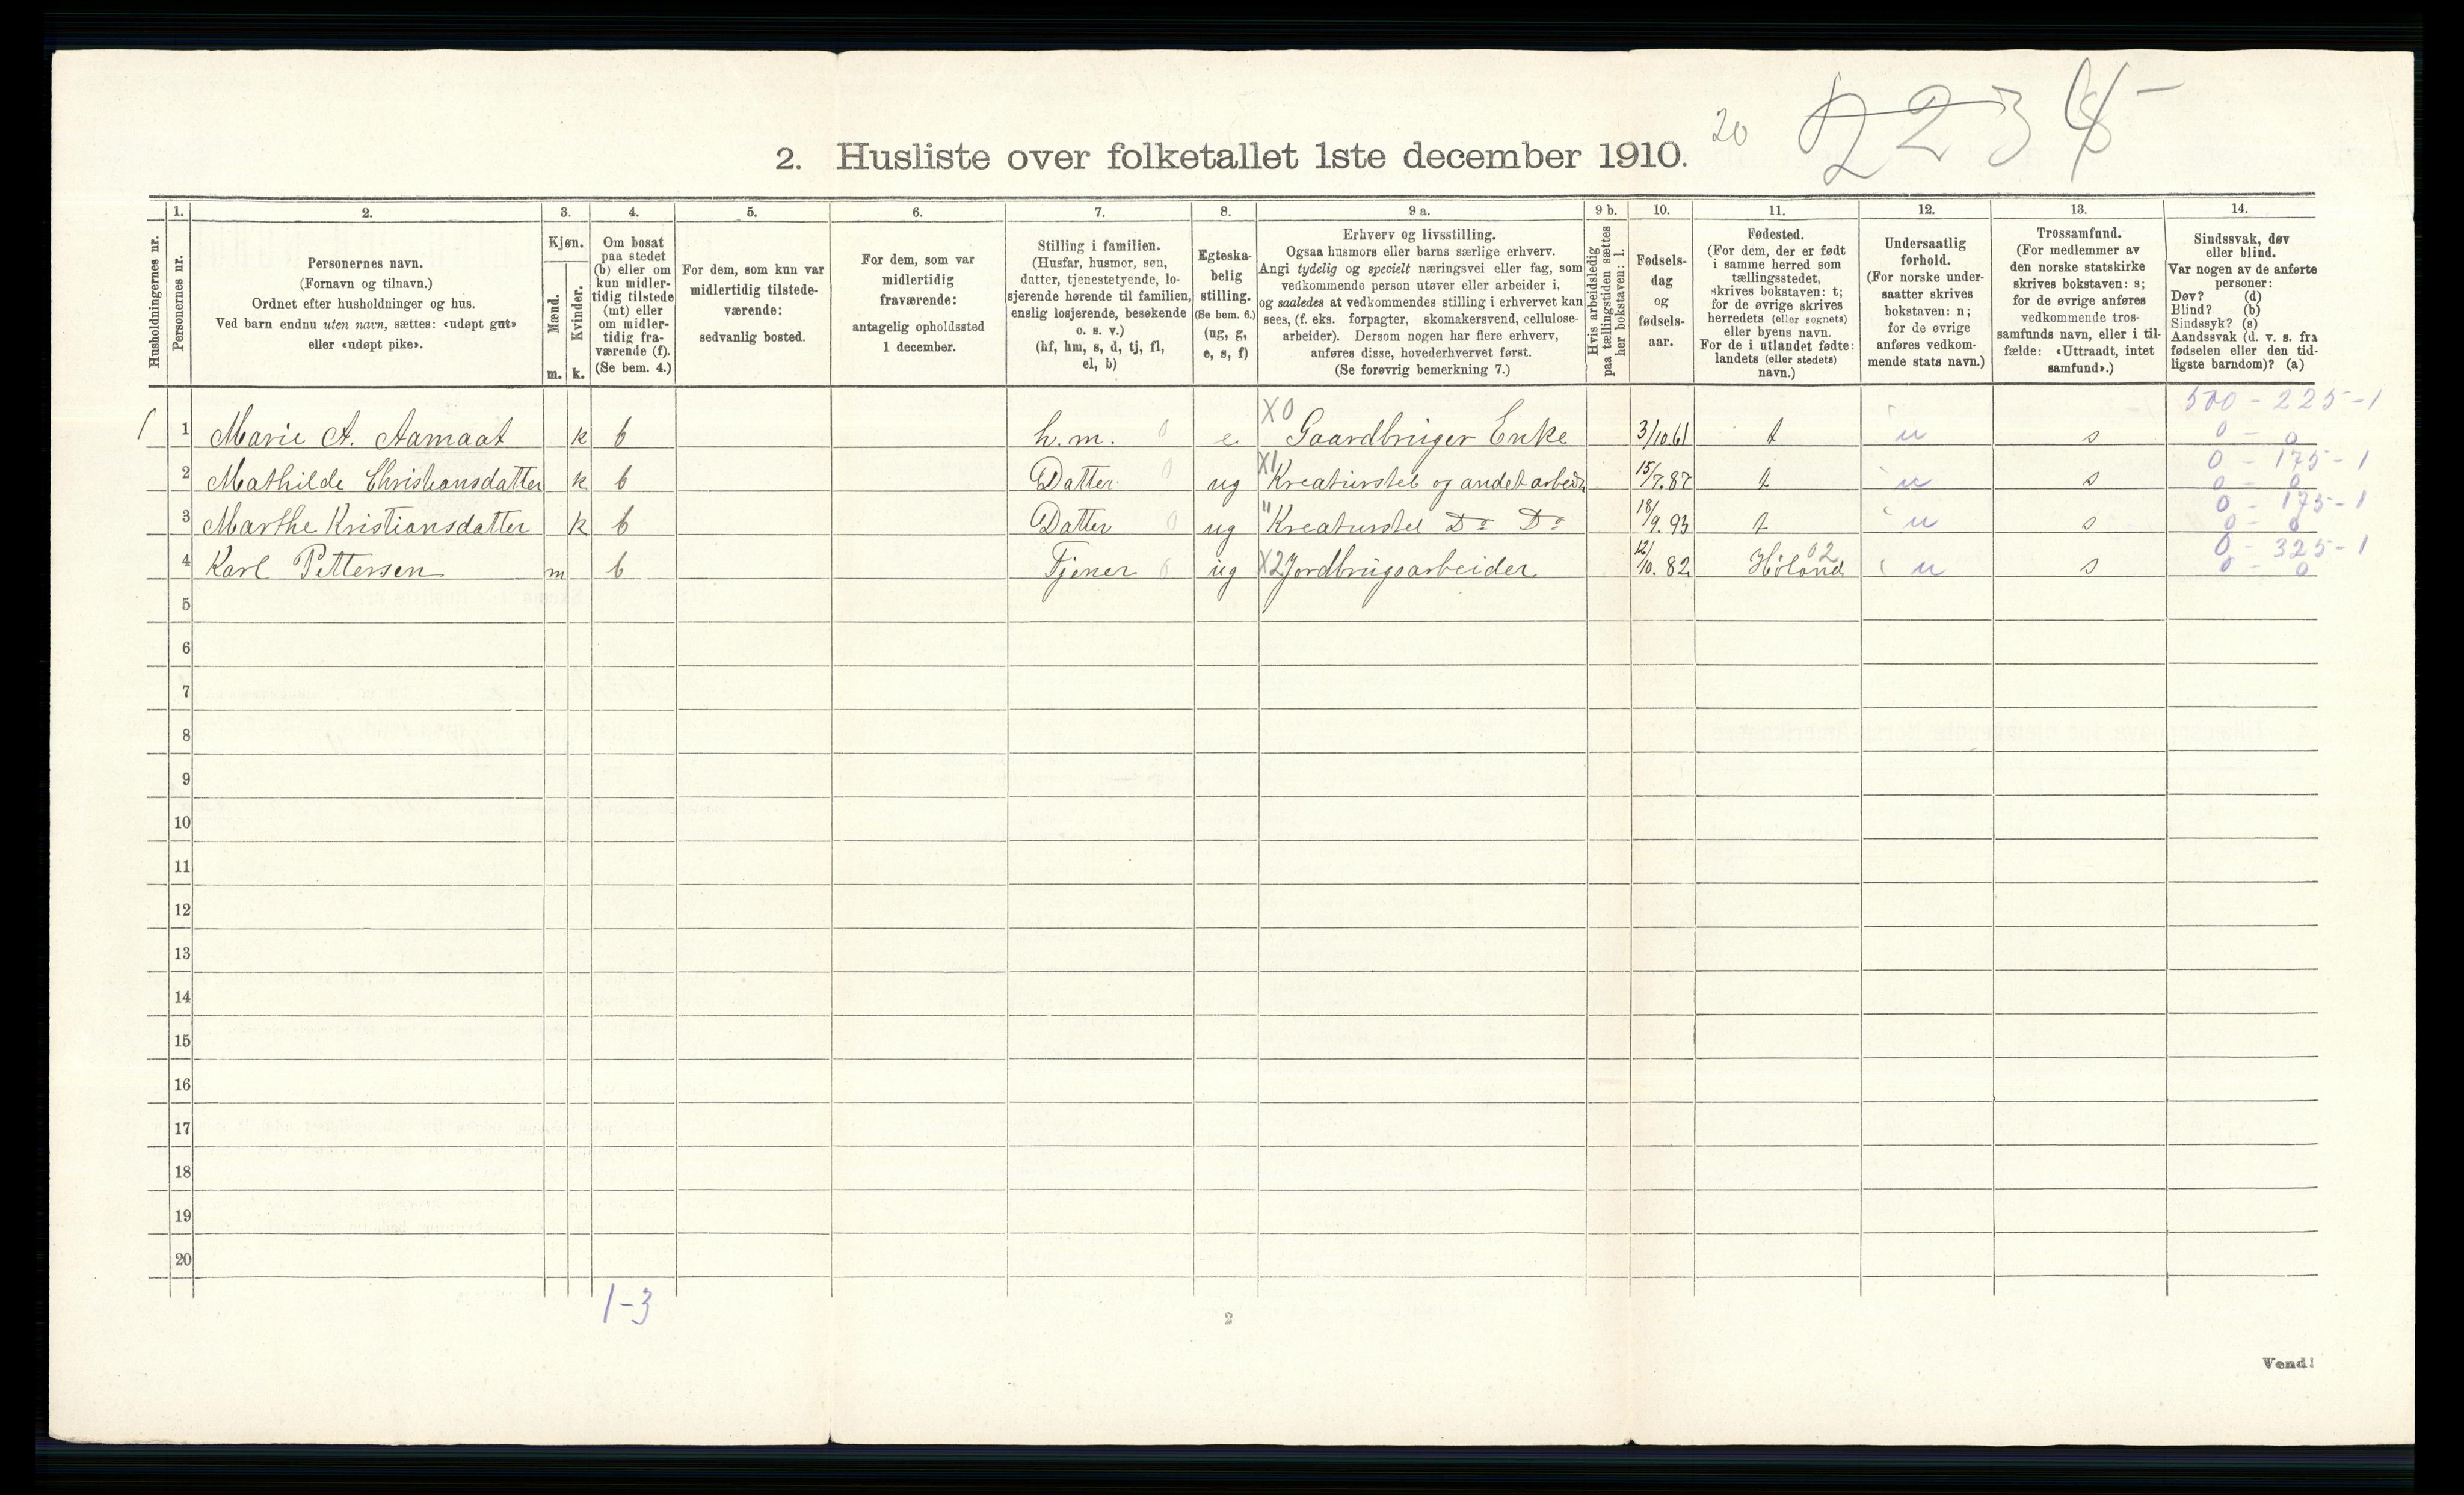 20
2. Husliste over folketallet 1ste december 1910.
Husholdningernes nr.
1.
Personernes nr.
2.
Personernes navn.
(Fornavn og tilnavn.)
Ordnet efter husholdninger og hus.
Ved barn endnu uten navn, sættes: «udøpt gut»
eller «udøpt pike».
3.
Kjøn.
Mænd.
Kvinder.
m. k.
4.
Om bosat
paa stedet
(b) eller om
kun midler-
tidig tilstede
(mt) eller
om midler-
tidig fra-
værende (f).
(Se bem. 4.)
5.
For dem, som kun var
midlertidig tilstede-
værende:
sedvanlig bosted.
6.
For dem, som var
midlertidig
fraværende:
antagelig opholdssted
1 december.
7.
Stilling i familien.
(Husfar, husmor, søn,
datter, tjenestetyende, lo-
sjerende hørende til familien,
enslig losjerende, besøkende
o. s. v.)
(hf, hm, s, d, tj, fl,
el, b)
8.
Egteska-
belig
stilling.
(Se bem. 6.)
(ug, g,
e, s, f)
9 a.
Erhverv og livsstilling.
Ogsaa husmors eller barns særlige erhverv.
Angi tydelig og specielt næringsvei eller fag, som
vedkommende person utøver eller arbeider i,
og saaledes at vedkommendes stilling i erhvervet kan
sees, (f. eks. forpagter, skomakersvend, cellulose-
arbeider). Dersom nogen har flere erhverv,
anføres disse, hovederhvervet først.
(Se forøvrig bemerkning 7.)
9 b.
Hvis arbeidsledig
paa tællingstiden sættes
her bokstaven: l.
10.
Fødsels-
dag
og
fødsels-
aar.
11.
Fødested.
(For dem, der er født
i samme herred som
tællingsstedet,
skrives bokstaven: t;
for de øvrige skrives
herredets (eller sognets)
eller byens navn.
For de i utlandet fødte:
landets (eller stedets)
navn.)
12.
Undersaatlig
forhold.
(For norske under-
saatter skrives
bokstaven: n;
for de øvrige
anføres vedkom-
mende stats navn.)
13.
Trossamfund.
(For medlemmer av
den norske statskirke
skrives bokstaven: s;
for de øvrige anføres
vedkommende tros-
samfunds navn, eller i til-
fælde: «Uttraadt, intet
samfund».)
14.
Sindssvak, døv
eller blind.
Var nogen av de anførte
personer:
Døv? (d)
Blind? (b)
Sindssyk? (s)
Aandssvak (d. v. s. fra
fødselen eller den tid-
ligste barndom)? (a)
500 - 225 - 1
1 1 Marie A. Aamaat k b h.m. 0 e X0 Gaardbruger Enke 3/10 61 t n s 0 - 0
0 - 175 - 1
2 Mathilde Christiansdatter k b Datter 0 ug X1 Kreaturstel og andet arbeide 15/7.87 t n s 0 - 0
0 - 175 - 1
3 Marthe Kristiansdatter k b Datter 0 ug " Kreaturstel Do Do 18/9.93 t n s 0 - 0
0 - 325 - 1
4 Karl Pettersen m b Tjener 0 ug X2 Jordbrugsarbeider 12/10.82 Höland 02 n s 0 - 0
5
6
7
8
9
10
11
12
13
14
15
16
17
18
19
20
1-3
2
Vend!